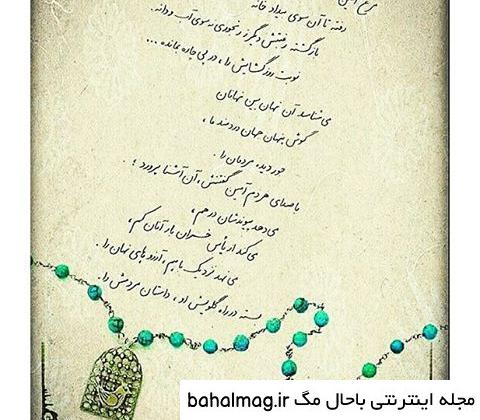 مرغ آمین
رفته تا آن سوی بیداد خانه
بازگشته رغبتش دیگر ز رنجوری نه سوی آب و دانه.
نوبت روز گشایش را ، در پی چاره بمانده ...
می شناسد آن نهان بین نهانان
گوش پنهان جهان دردمند ما ،
جور دیده مردمان را .
با صدای هر دم آمین گفتنش ، آن آشنا پرورد ؛
می دهد پیوندشان در هم ،
می کند از یأس خسران بار آنان کم ،
می نهد نزدیک با هم ، آرزو های نهان را .
بسته در راه گلویش او ، داستان مردمش را .
مجله اینترنتی باحال مگ bahalmag.ir